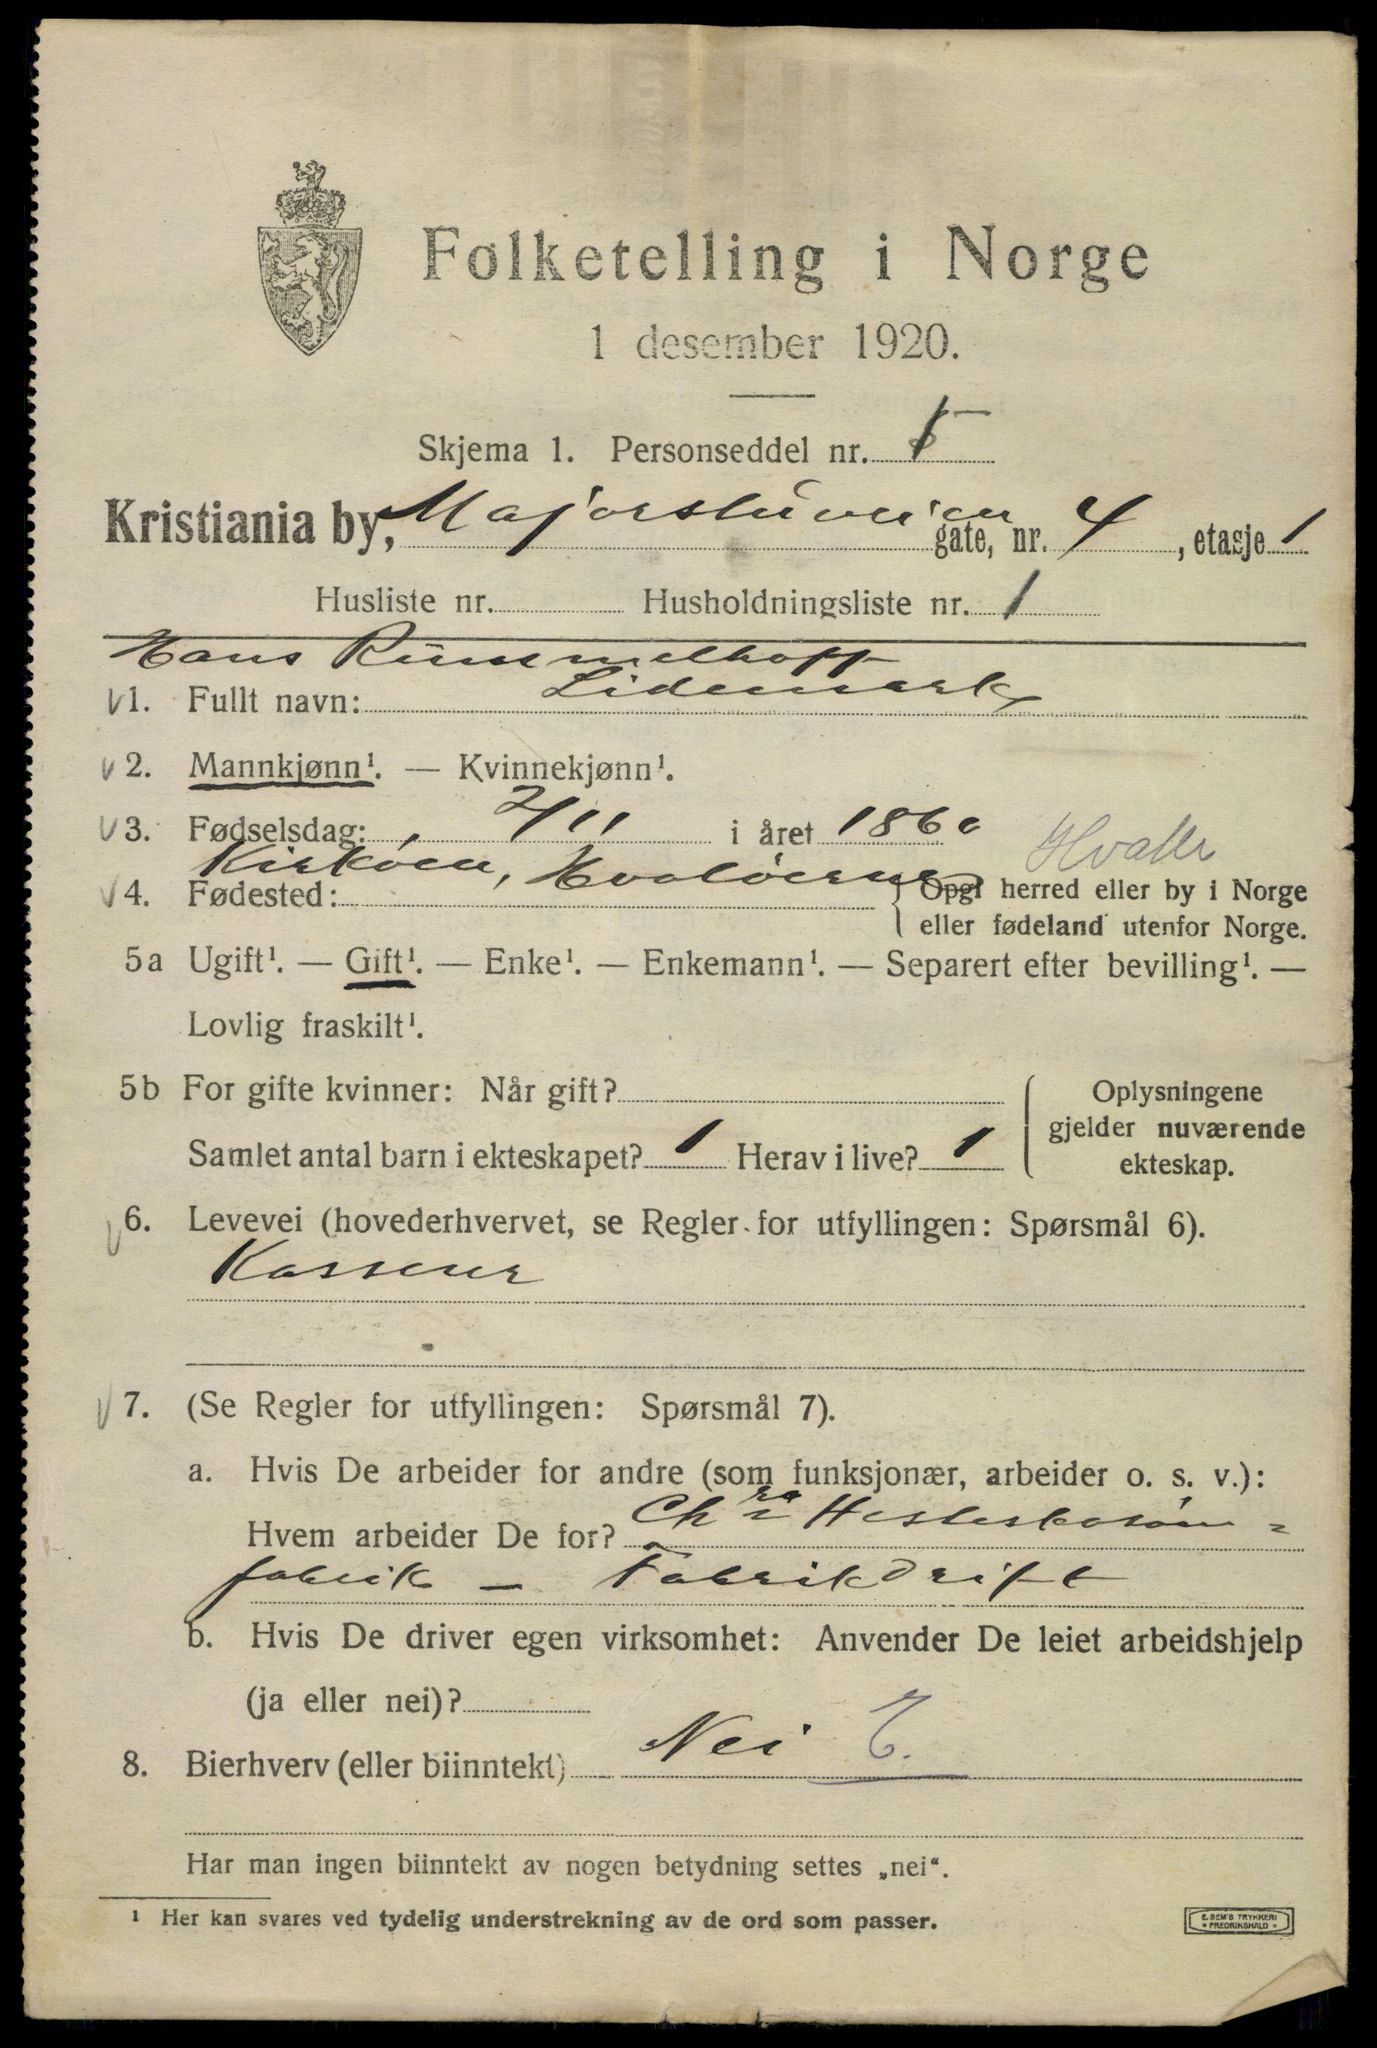 Folketelling i Norge
1 desember 1920.
Skjema 1. Personseddel nr.
Kristiania by, Majorstuveien gate, nr. 4, etasje 1
Husliste nr. Husholdningsliste nr. 1
Hans Rummelhoff
1. Fullt navn: Lidemark
2. Mannkjønn¹. — Kvinnekjønn¹.
3. Fødselsdag: 7/11 i året 1860 Hvaler
Kirkøen, Hvaløerne
4. Fødested: Opgi herred eller by i Norge
eller fødeland utenfor Norge.
5a Ugift¹. — Gift¹. — Enke¹. — Enkemann¹. — Separert efter bevilling¹. —
Lovlig fraskilt¹.
5b For gifte kvinner: Når gift?
Samlet antal barn i ekteskapet? 1 Herav i live? 1
Oplysningene
gjelder nuværende
ekteskap.
6. Levevei (hovederhvervet, se Regler for utfyllingen: Spørsmål 6).
Kasserer
7. (Se Regler for utfyllingen: Spørsmål 7).
a. Hvis De arbeider for andre (som funksjonær, arbeider o. s. v.):
Hvem arbeider De for? Chra Hesteskosøm-
fabrik — Fabrikdrift
b. Hvis De driver egen virksomhet: Anvender De leiet arbeidshjelp
(ja eller nei)?
8. Bierhverv (eller biinntekt) Nei E.
Har man ingen biinntekt av nogen betydning settes „nei“.
¹ Her kan svares ved tydelig understrekning av de ord som passer.
E. SEM'S TRYKKERI
FREDRIKSHALD